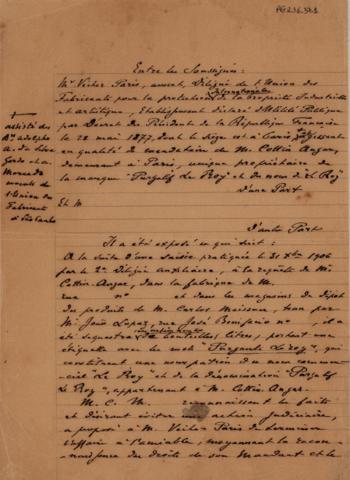 PG236.371
Entre les Soussignés:
Mr Victor Pâris, avocat, Délégué de l'Union des
Fabricants pour la protection internationale de la Propriété Industrielle
et artistique, Etablissement déclaré d'Utilité Publique
par Décret du Président de la République Française
le 28 mai 1877, dont le siège est à Paris, agissant
en qualité de mandataire de M. Cottin Anger,
demeurant à Paris, unique propriétaire de
la marque "Purgatif Le Roy" et du nom de Le Roy
D'une Part
+
assisté des
Drs Adolpho
A. da
Gordo et
avocats de
l'Union des
Fabricants
à São Paulo
Et M
D'autre Part
Il a été exposé ce qui suit:
A la suite d'une saisie pratiquée le 31 Xbre 1906
par le 2e Délégué Auxiliaire, à la requête de Mr
Cottin-Anger, dans la fabrique de M.
rue nº et dans les magasins de dépôt
du produit de M. Carlos Maisonn, tenu par
Mr João Lopez, rue José Bonifacio nº , il a
été séquestré bouteilles (litres) portant une
étiquette avec le mot "Purgante Le Roy", qui
constituent une usurpation du nom commer-
cial "Le Roy" et de la dénomination "Purgatif
Le Roy", appartenant à M. Cottin Anger.
M. C. M. reconnaissant les faits
et désirant éviter une action judiciaire,
a proposé à M. Victor Pâris de terminer
l'affaire à l'amiable, moyennant la recon-
naissance du droit de son Mandant et le